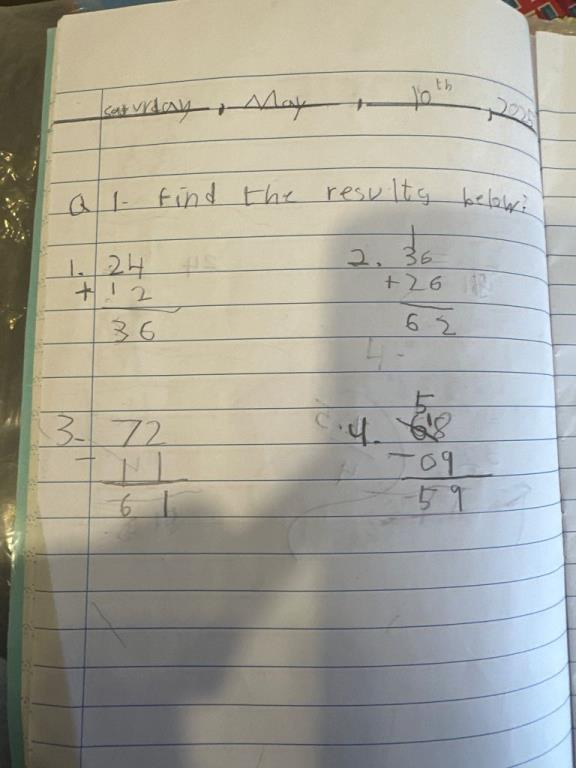 saturday, May, 10th, 2025
Q 1- find the results below?
1. 24
+ 12
36
1
2. 36
+ 26
62
3- 72
- 11
61
5
4. 618
- 09
59